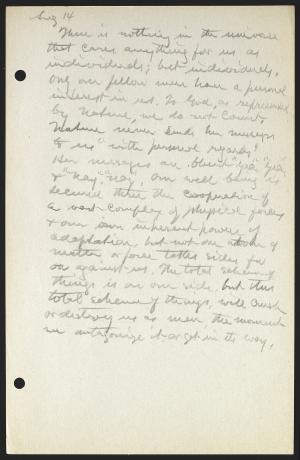 Aug 14
There is nothing in the universe
that cares anything for us as
individuals; but individuals,
only our fellow men have a personal
interest in us. To God, as represented
by Nature, we do not count.
Nature never sends her messages
to us "with personal regards".
Her messages are "Yea", "Yea",
& "Nay", "Nay", Our well being is
secured thru the cooperation of
a vast complex of physical forces
& our own inherent powers of
adaptation, but not one atom of
matter or force takes sides for
or against us. The total scheme of
things is on our side, but this
total scheme of things, will crush
or destroy us as men, the moment
we antagonize it or get in its way.